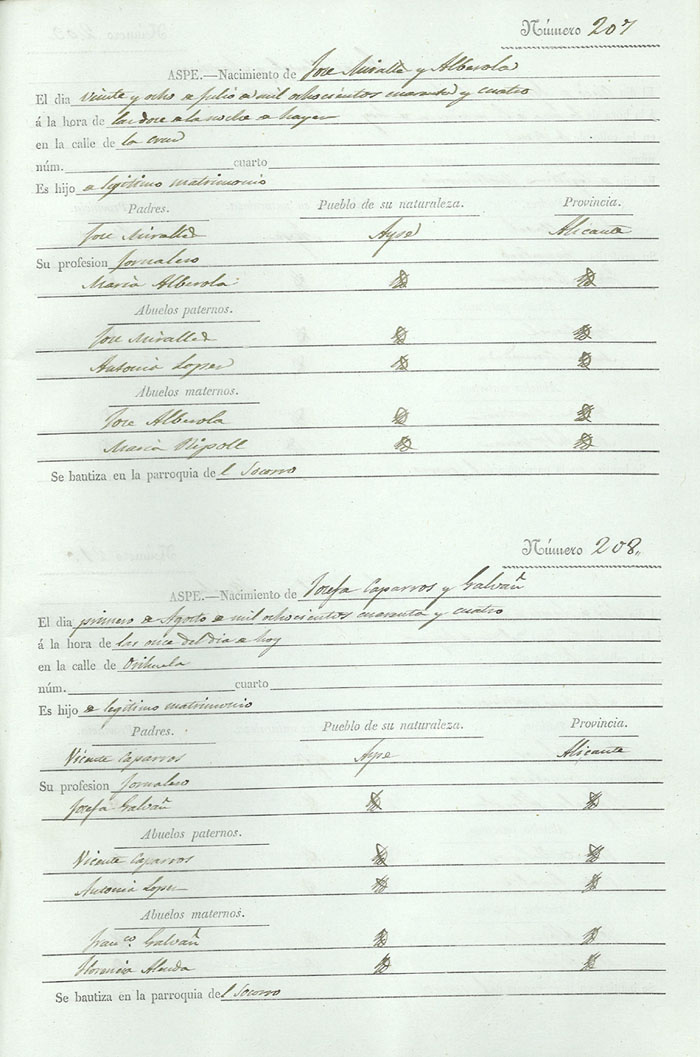 Número 207
ASPE.—Nacimiento de Jose Miralles y Alberola
El dia veinte y ocho de Julio de mil ochocientos cuarenta y cuatro
á la hora de las doce de la noche de hayer
en la calle de la Cruz
núm. cuarto
Es hijo de legitimo matrimonio
Padres. Pueblo de su naturaleza. Provincia.
Jose Miralles Aspe Alicante
Su profesion Jornalero
Maria Alberola
Abuelos paternos.
Jose Miralles
Antonia Lopez
Abuelos maternos.
Jose Alberola
Maria Ripoll
Se bautiza en la parroquia del Socorro
Número 208.
ASPE.—Nacimiento de Josefa Caparros y Galvañ
El dia primero de Agosto de mil ochocientos cuarenta y cuatro
á la hora de las once del dia de hoy
en la calle de Orihuela
núm. cuarto
Es hijo de legitimo matrimonio
Padres. Pueblo de su naturaleza. Provincia.
Vicente Caparros Aspe Alicante
Su profesion Jornalero
Josefa Galvañ
Abuelos paternos.
Vicente Caparros
Antonia Lopez
Abuelos maternos.
Franco Galvañ
Florencia Alenda
Se bautiza en la parroquia del Socorro